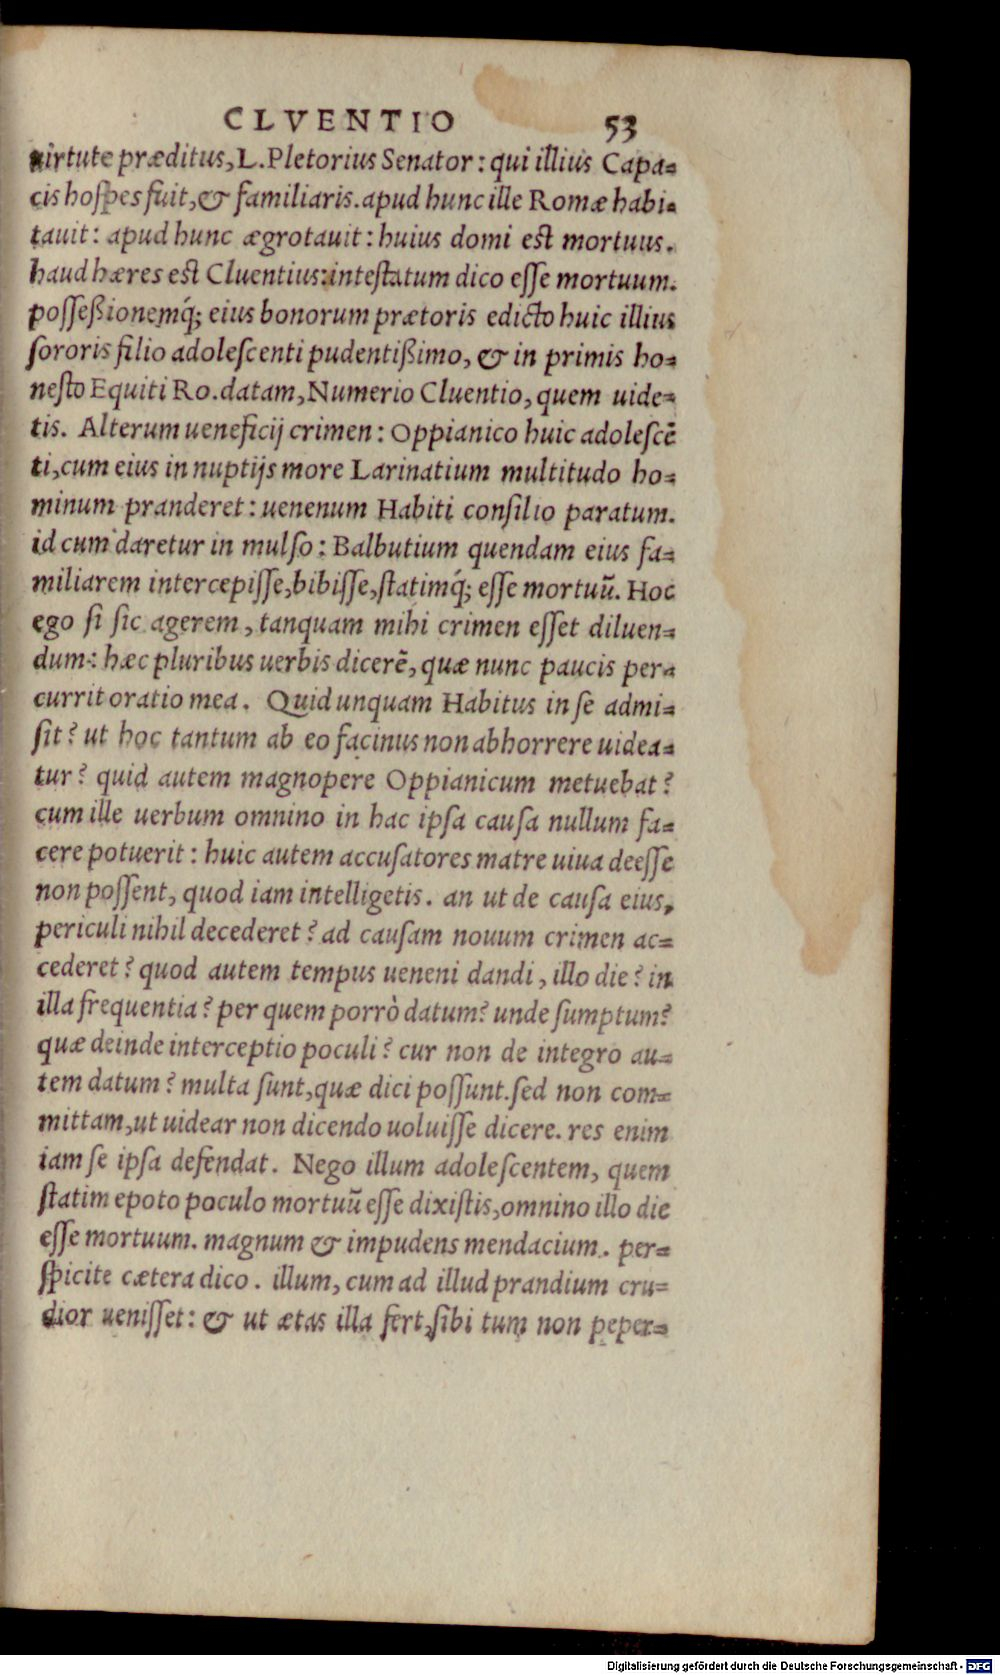 CLVENTIO 53
uirtute præditus, L. Pletorius Senator: qui illius Capa=
cis hoſpes fuit, & familiaris. apud hunc ille Romæ habi=
tauit: apud hunc ægrotauit: huius domi est mortuus.
haud hæres est Cluentius: inteſtatum dico eſſe mortuum.
poſſeßionemq́; eius bonorum prætoris edicto huic illius
ſororis filio adoleſcenti pudentißimo, & in primis ho=
neſto Equiti Ro. datam, Numerio Cluentio, quem uide=
tis. Alterum ueneficij crimen: Oppianico huic adoleſcē
ti, cum eius in nuptijs more Larinatium multitudo ho=
minum pranderet: uenenum Habiti conſilio paratum.
id cum daretur in mulſo: Balbutium quendam eius fa=
miliarem intercepiſſe, bibiſſe, ſtatimq́; eſſe mortuū. Hoc
ego ſi ſic agerem, tanquam mihi crimen eſſet diluen=
dum: hæc pluribus uerbis dicerē, quæ nunc paucis per=
currit oratio mea. Quid unquam Habitus in ſe admi=
ſit? ut hoc tantum ab eo facinus non abhorrere uidea=
tur? quid autem magnopere Oppianicum metuebat?
cum ille uerbum omnino in hac ipſa cauſa nullum fa=
cere potuerit: huic autem accuſatores matre uiua deeſſe
non poſſent, quod iam intelligetis. an ut de cauſa eius,
periculi nihil decederet? ad cauſam nouum crimen ac=
cederet? quod autem tempus ueneni dandi, illo die? in
illa frequentia? per quem porrò datum? unde ſumptum?
quæ deinde interceptio poculi? cur non de integro au=
tem datum? multa ſunt, quæ dici poſſunt. ſed non com=
mittam, ut uidear non dicendo uoluiſſe dicere. res enim
iam ſe ipſa defendat. Nego illum adoleſcentem, quem
ſtatim epoto poculo mortuū eſſe dixiſtis, omnino illo die
eſſe mortuum. magnum & impudens mendacium. per=
ſpicite cætera dico. illum, cum ad illud prandium cru=
dior ueniſſet: & ut ætas illa fert, ſibi tum non peper=
Digitalisierung gefördert durch die Deutsche Forschungsgemeinschaft - DFG